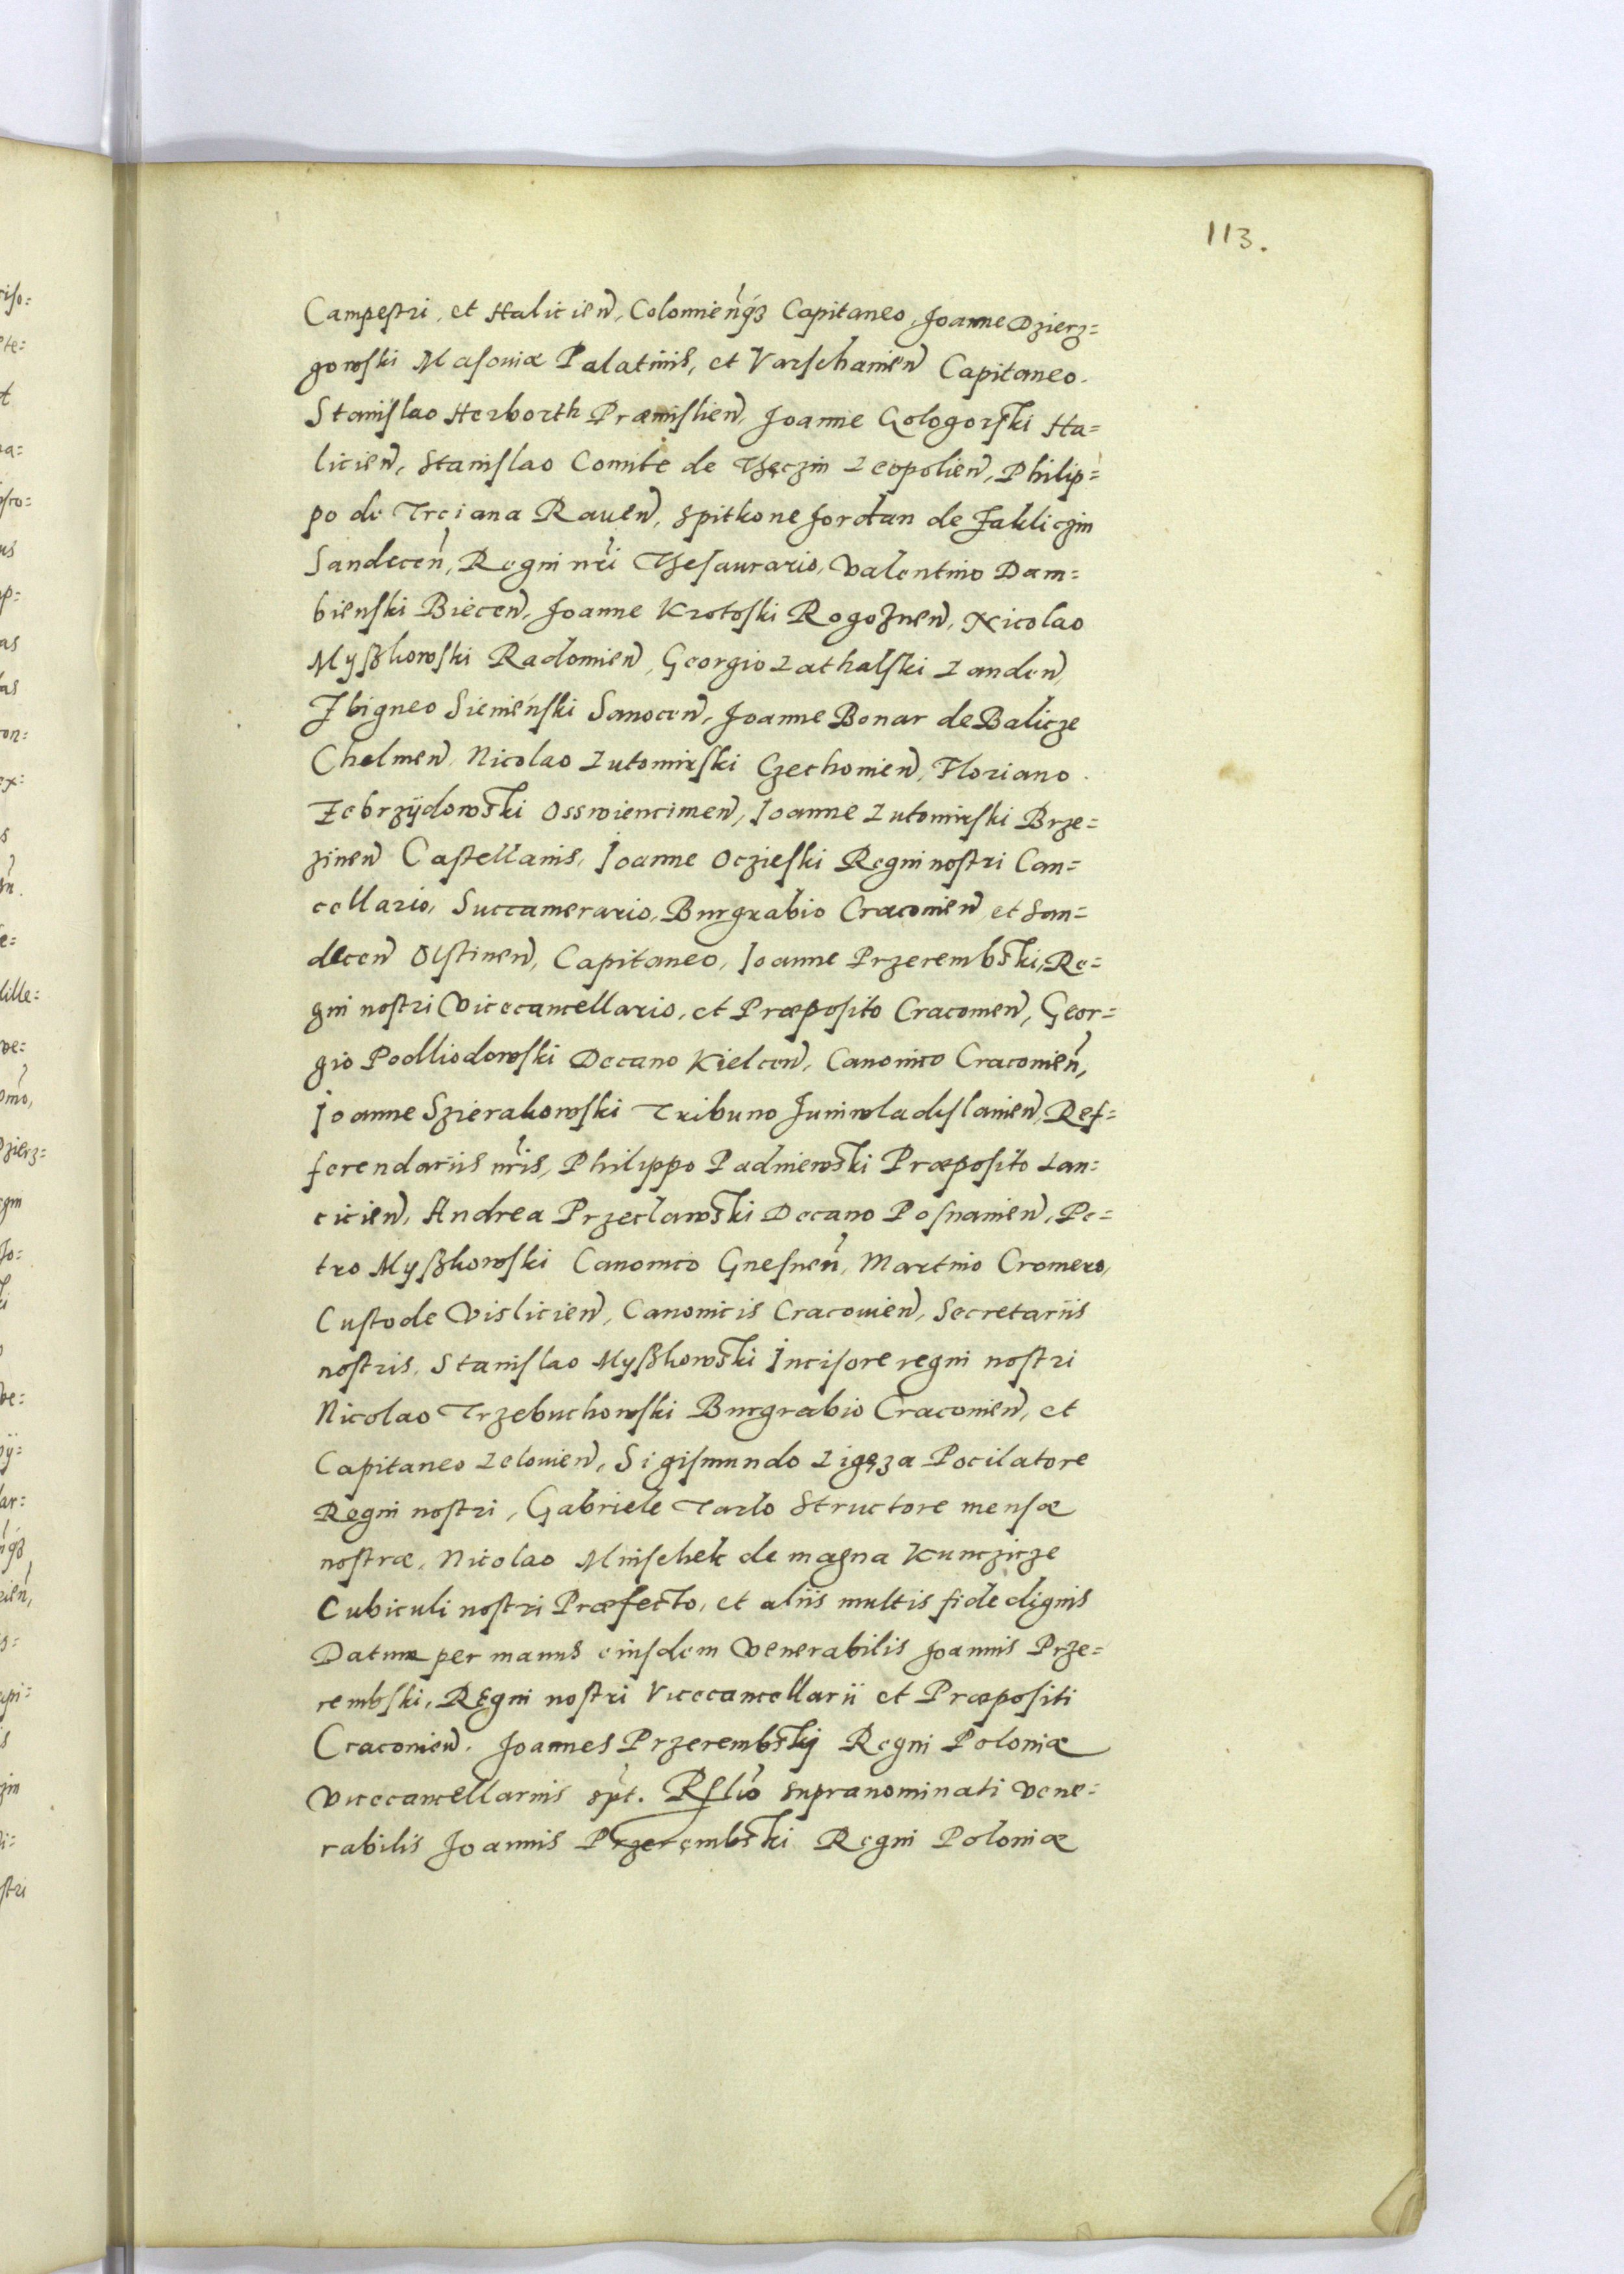 113.
Campestri, et Halicien̄, Colomien̄q́ꝫ Capitaneo, Joanne Dzierz=
gowski Masoviæ Palatinis, et Varschavien̄ Capitaneo.
Stanislao Herborth Præmislien̄, Joanne Gologorski Ha=
licien̄, Stanislao Comite de Theczin Leopolien̄, Philip=
po de Trciana Raven̄, Spitkone Jordan de Zakliczin
Sandecen̄, Regni nr̄i Thesaurario, Valentino Dam=
bienski Biecen̄, Joanne Krotoski Rogoznen̄, Nicolao
Myßkowski Radomien̄, Georgio Lathalski Landen̄,
Zbigneo Siemieński Sanocen̄, Joanne Bonar de Balicze
Chelmen̄, Nicolao Lutomirski Czechovien̄, Floriano
Zebrzÿdowski Osswiencimen̄, Joanne Lutomirski Brze=
zinen̄ Castellanis, Joanne Oczieski Regni nostri Can=
cellario, Succamerario, Burgrabio Cracovien̄ et San=
decen̄ Olstinen̄, Capitaneo, Joanne Przerembski, Re=
gni nostri Vicecancellario, et Præposito Cracovien̄, Geor=
gio Podlliodowski Decano Kielcen̄, Canonico Cracovien̄,
Joanne Szierakowski Tribuno Juniwladislavien̄, Ref=
ferendariis nr̄is, Philippo Padniewski Præposito Lan=
cicien̄, Andrea Przeclawski Decano Posnanien̄, Pe=
tro Myßkowski Canonico Gnesnen̄, Martino Cromero,
Custode Vislicien̄, Canonicis Cracovien̄, Secretariis
nostris, Stanislao Myßkowski Incisore regni nostri
Nicolao Trzebuchowski Burgrabio Cracovien̄, et
Capitaneo Lelovien̄, Sigismundo Ligęza Pocilatore
Regni nostri, Gabriele Tarlo Structore mensæ
nostræ, Nicolao Mnischek de magna Kunczicze
Cubiculi nostri Præfecto, et aliis multis fide dignis
Datum per manus eiusdem Venerabilis Joannis Prze=
rembski, Regni nostri Vicecancellarii et Præpositi
Cracovien̄. Joannes Przerembskÿ Regni Poloniæ
Vicecancellarius sp̄t. Rel̄io supranominati Vene=
rabilis Joannis Przerembski Regni Poloniæ